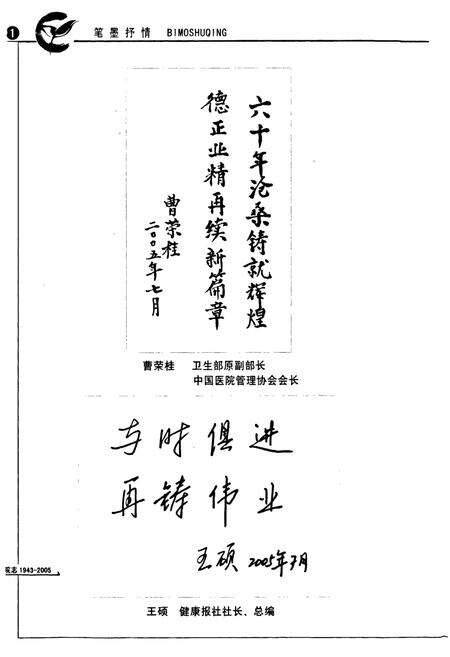 1
笔墨抒情 BIMOSHUQING
六十年沧桑铸就辉煌
德正业精再续新篇章
曹荣桂
二〇〇五年七月
曹荣桂 卫生部原副部长
中国医院管理协会会长
与时俱进
再铸伟业
王硕 2005年7月
院志 1943-2005
王硕 健康报社社长、总编